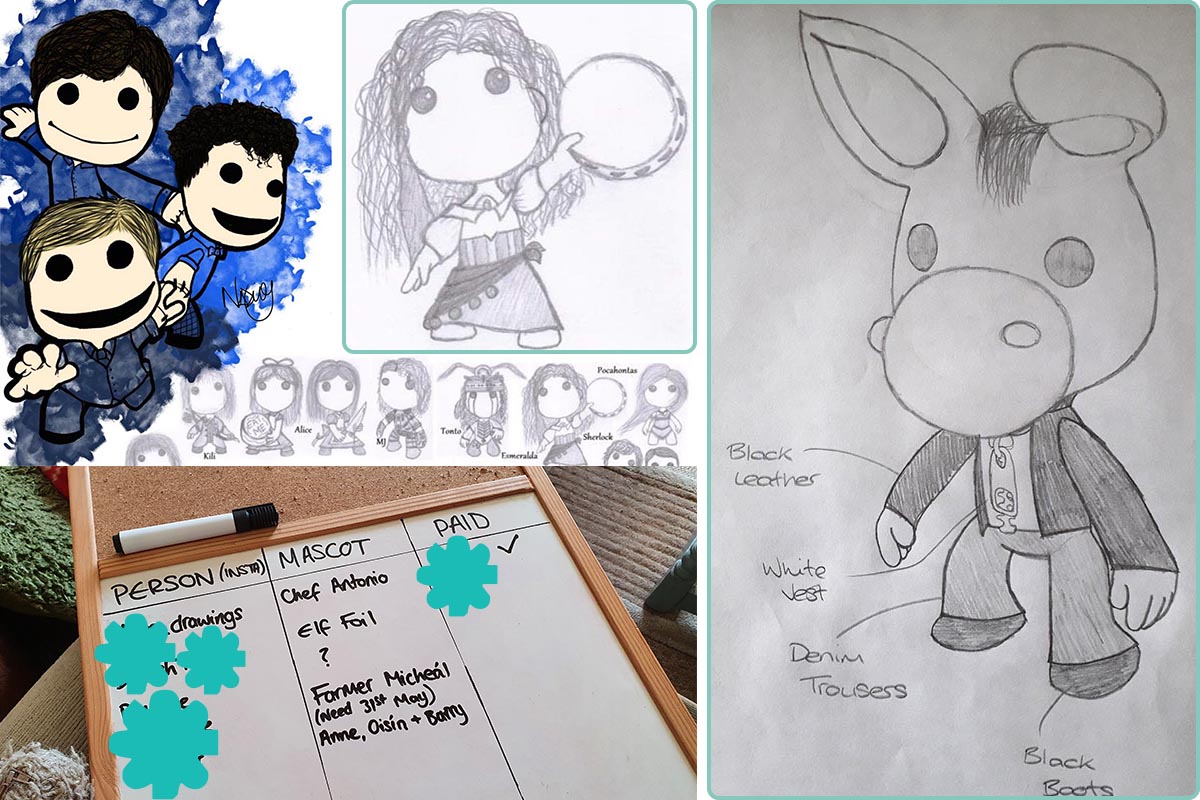 Kili
Alice
MJ
Tonto
Esmeralda
Sherlock
Pocahontas
PERSON (INSTA)
MASCOT
PAID
drawings
Chef Antonio
✓
Elf Foil
?
Farmer Micheál
(Need 31st May)
Anne, Oisín + Barry
Black
Leather
White
Vest
Denim
Trousers
Black
Boots